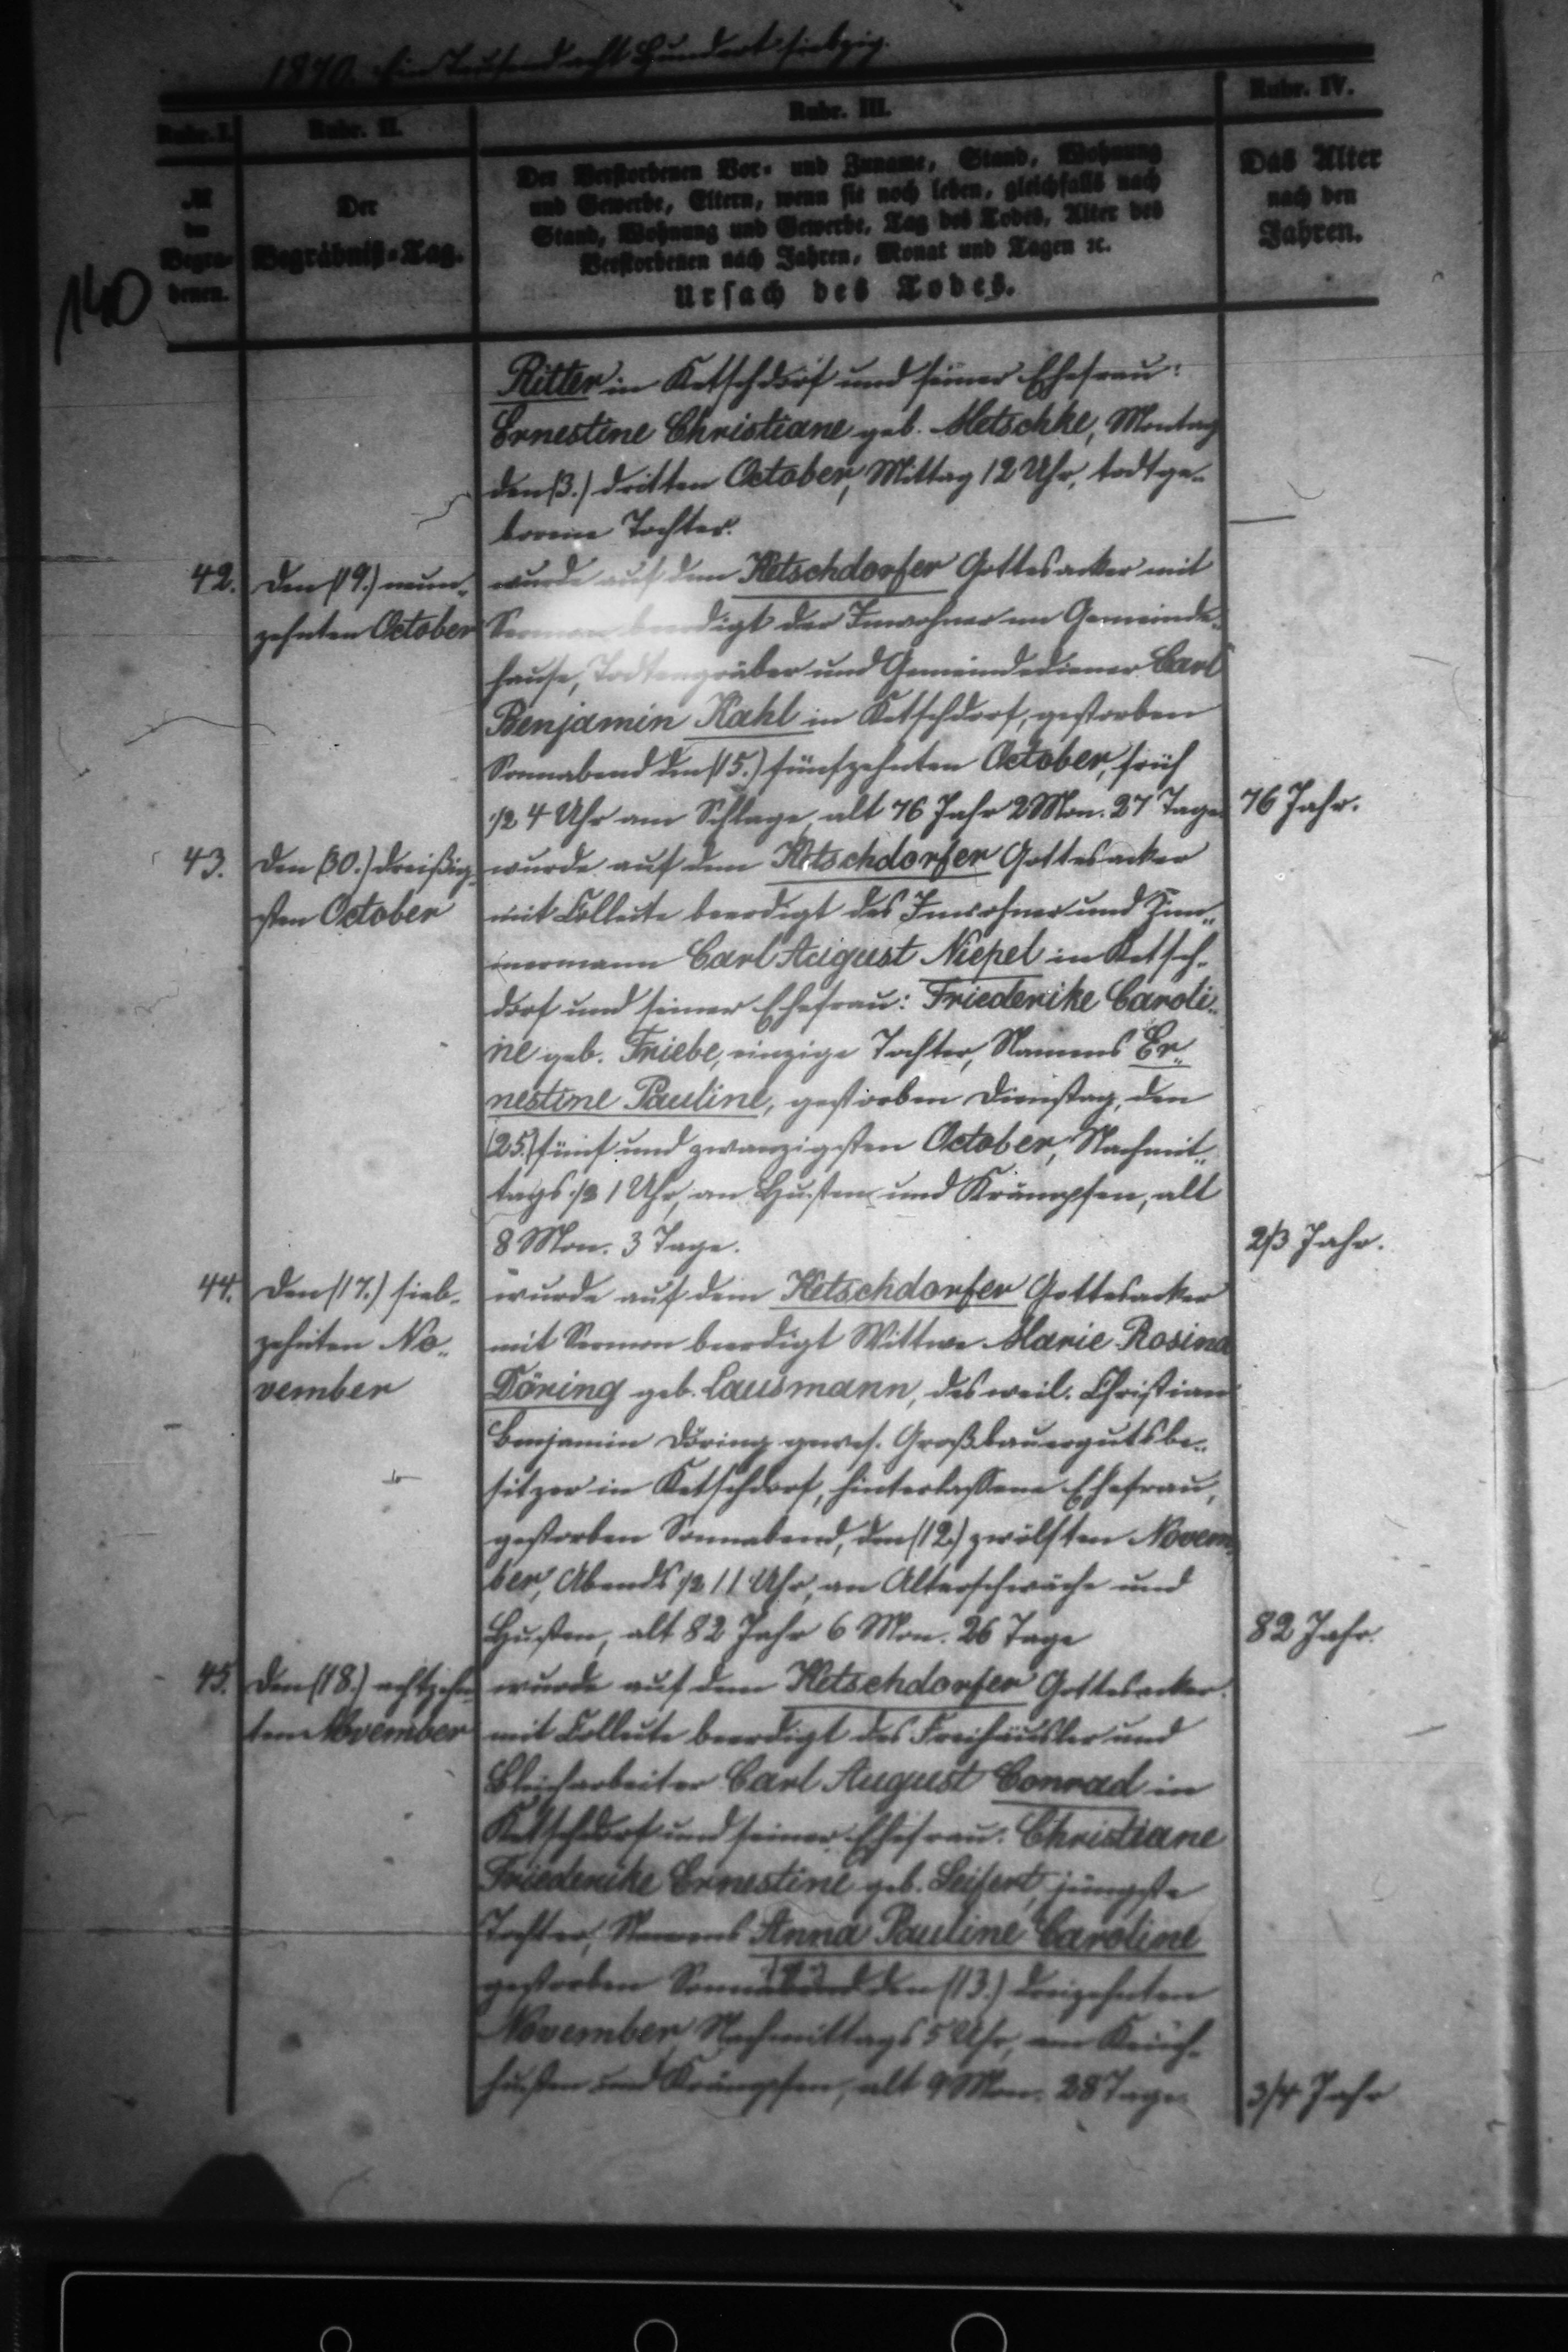 1870. Ein Tausend acht Hundert siebzig.
Rubr. I.
Rubr. II.
Rubr. III.
Rubr. IV.
№
der
Begra-
benen.
Der
Begräbniß-Tag.
Des Verstorbenen Vor- und Zuname, Stand, Wohnung
und Gewerbe, Eltern, wenn sie noch leben, gleichfalls nach
Stand, Wohnung und Gewerbe, Tag des Todes, Alter des
Verstorbenen nach Jahren, Monat und Tagen ꝛc.
Ursach des Todes.
Das Alter
nach den
Jahren.
140
Ritter in Ketschdorf und seiner Ehefrau:
Ernestine Christiane geb. Metschke, Montag
den (3.) dritten October, Mittag 12 Uhr, todtge-
borene Tochter.
—
42.
den (19.) neun-
zehnten October
wurde auf dem Ketschdorfer Gottesacker mit
Sermon beerdigt der Inwohner im Gemeinde-
hause, Todtengräber und Gemeindediener Carl
Benjamin Kahl in Ketschdorf, gestorben
Sonnabend den (15.) fünfzehnten October, früh
1/2 4 Uhr am Schlage, alt 76 Jahr 2 Mon. 27 Tage
76 Jahr.
43.
den (30.) dreißig-
sten October
wurde auf dem Ketschdorfer Gottesacker
mit Collecte beerdigt des Inwohner und Zim-
mermann Carl August Niepel in Ketsch-
dorf und seiner Ehefrau: Friederike Caroli-
ne geb. Friebe, einzige Tochter, Namens Er-
nestine Pauline, gestorben Dienstag, den
(25.) fünf und zwanzigsten October, Nachmit-
tags 1/2 1 Uhr, an Husten und Krämpfen, alt
8 Mon. 3 Tage.
2/3 Jahr.
44.
den (17.) sieb-
zehnten No-
vember
wurde auf dem Ketschdorfer Gottesacker
mit Sermon beerdigt Wittwe Marie Rosina
Döring geb. Lausmann, des weil. Christian
Benjamin Döring gewes. Großbauergutsbe-
sitzer in Ketschdorf, hinterlassene Ehefrau,
gestorben Sonnabend, den (12.) zwölften Novem-
ber, Abends 1/2 11 Uhr, an Alterschwäche und
Husten, alt 82 Jahr 6 Mon. 26 Tage
82 Jahr.
45.
den (18.) achtzehn-
ten November
wurde auf dem Ketschdorfer Gottesacker
mit Collecte beerdigt des Freihäusler und
Bleicharbeiter Carl August Conrad in
Ketschdorf und seiner Ehefrau: Christiane
Friederike Ernestine geb. Seifert, jüngste
Tochter, Namens Anna Pauline Caroline
gestorben Sonnabend den (13.) dreizehnten
November, Nachmittags 5 Uhr, am Keuch-
husten und Krämpfen, alt 9 Mon. 28 Tage
3/4 Jahr